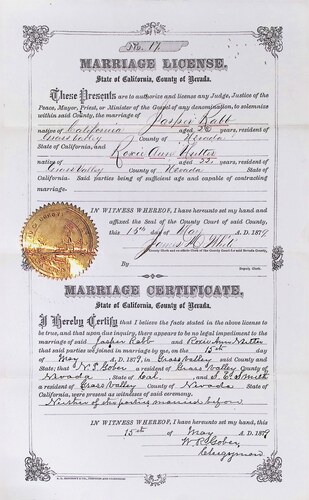 No. 17
MARRIAGE LICENSE.
State of California, County of Nevada.
These Presents are to authorize and license any Judge, Justice of the
Peace, Mayor, Priest, or Minister of the Gospel of any denomination, to solemnize
within said County, the marriage of Jasper Rabb
native of California aged years, resident of
Grass Valley County of Nevada
State of California, and Roxie Ann Nutter
native of aged 22 years, resident of
Grass Valley County of Nevada State of
California. Said parties being of sufficient age and capable of contracting
marriage.
IN WITNESS WHEREOF, I have hereunto set my hand and
affixed the Seal of the County Court of said County,
this 15th day of May A. D. 1879
James
By
Deputy Clerk.
MARRIAGE CERTIFICATE.
State of California, County of Nevada.
I Hereby Certify that I believe the facts stated in the above license to
be true, and that upon due inquiry, there appears to be no legal impediment to the
marriage of said Jasper Rabb and Roxie Ann Nutter
that said parties were joined in marriage by me, on the 15th day
of May A. D. 1879, in Grass Valley said County and
State; that Gober a resident of Grass Valley County of
Nevada State of Cal. and Smith
a resident of Grass Valley County of Nevada State of
California, were present as witnesses of said ceremony.
Neither of the parties married before
IN WITNESS WHEREOF, I have hereunto set my hand, this
15th of May A. D. 1879
Gober,
Clergyman